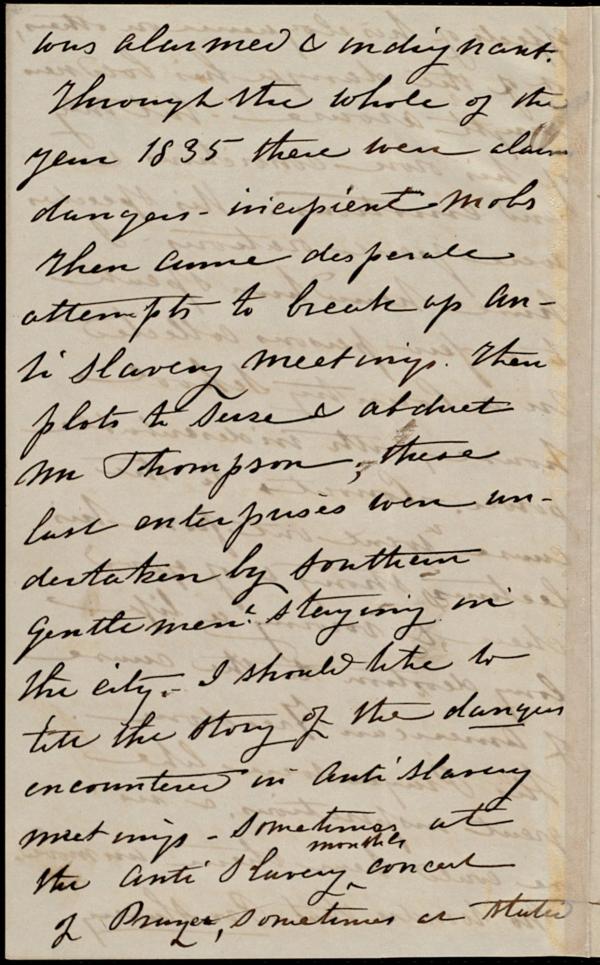 was alarmed & indignant.
Through the whole of the
year 1835 there were alarm
dangers - incipient mobs
Then came desperate
attempts to break up An-
ti Slavery meetings. Then
plots to seize & abduct
Mr Thompson, these
last enterprises were un-
dertaken by Southern
Gentlemen staying in
the city. - I should like to
tell the story of the dangers
encountered in Anti Slavery
meetings - Sometimes at
the Anti Slavery monthly concert
of Prayer, sometimes at